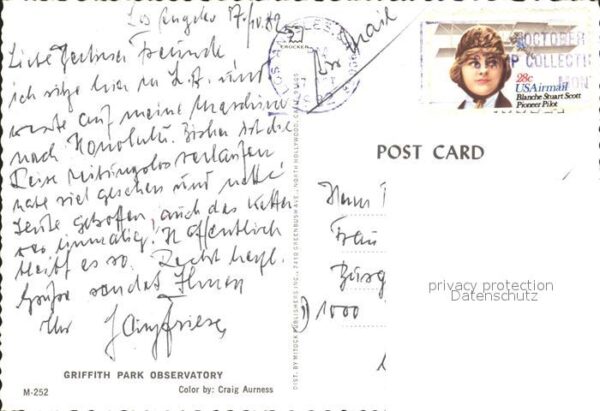 Los Angeles 17.10.82
Liebe Freunde
ich sitze hier in L.A. und
warte auf meine Maschine
nach Honolulu. Bisher ist die
Reise verlaufen
habe viel gesehen und nette
Leute getroffen, auch das Wetter
war einmalig! Hoffentlich
bleibt es so. Recht herzl.
Grüße sendet Ihnen
Ihr
GRIFFITH PARK OBSERVATORY
M-252
Color by: Craig Aurness
DIST. BY MITOCK PUBLISHERS INC., 7410 GREENBUSH AVE., NORTH HOLLYWOOD, CALIF.
CROCKER
LOS ANGELES
OCTOBER
STAMP COLLECTING
MONTH
28c
USAirmail
Blanche Stuart Scott
Pioneer Pilot
POST CARD
Herrn
Frau
1000
privacy protection
Datenschutz